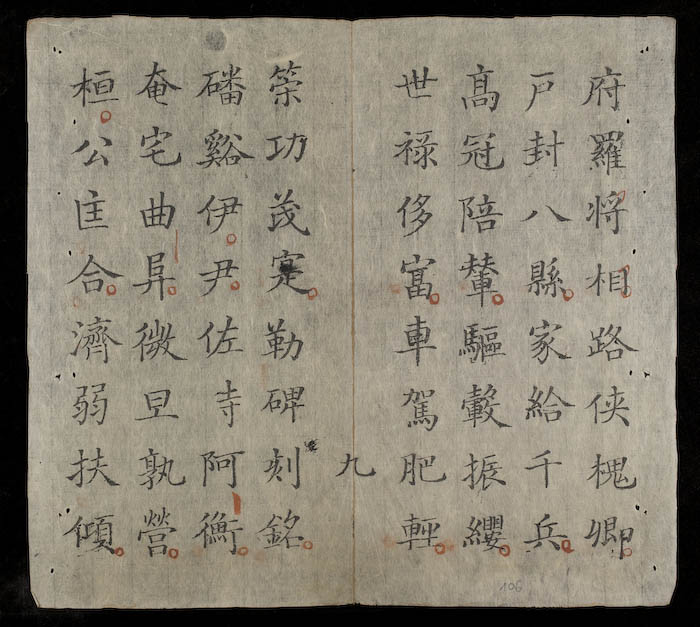 府羅将相路俠槐卿
戸封八縣家給千兵
髙冠陪輦驅轂振纓
世禄侈富車駕肥輕
九
策功茂寔勒碑刻銘
磻谿伊尹佐寺阿衡
奄宅曲阜微旦孰營
桓公匡合濟弱扶傾
106